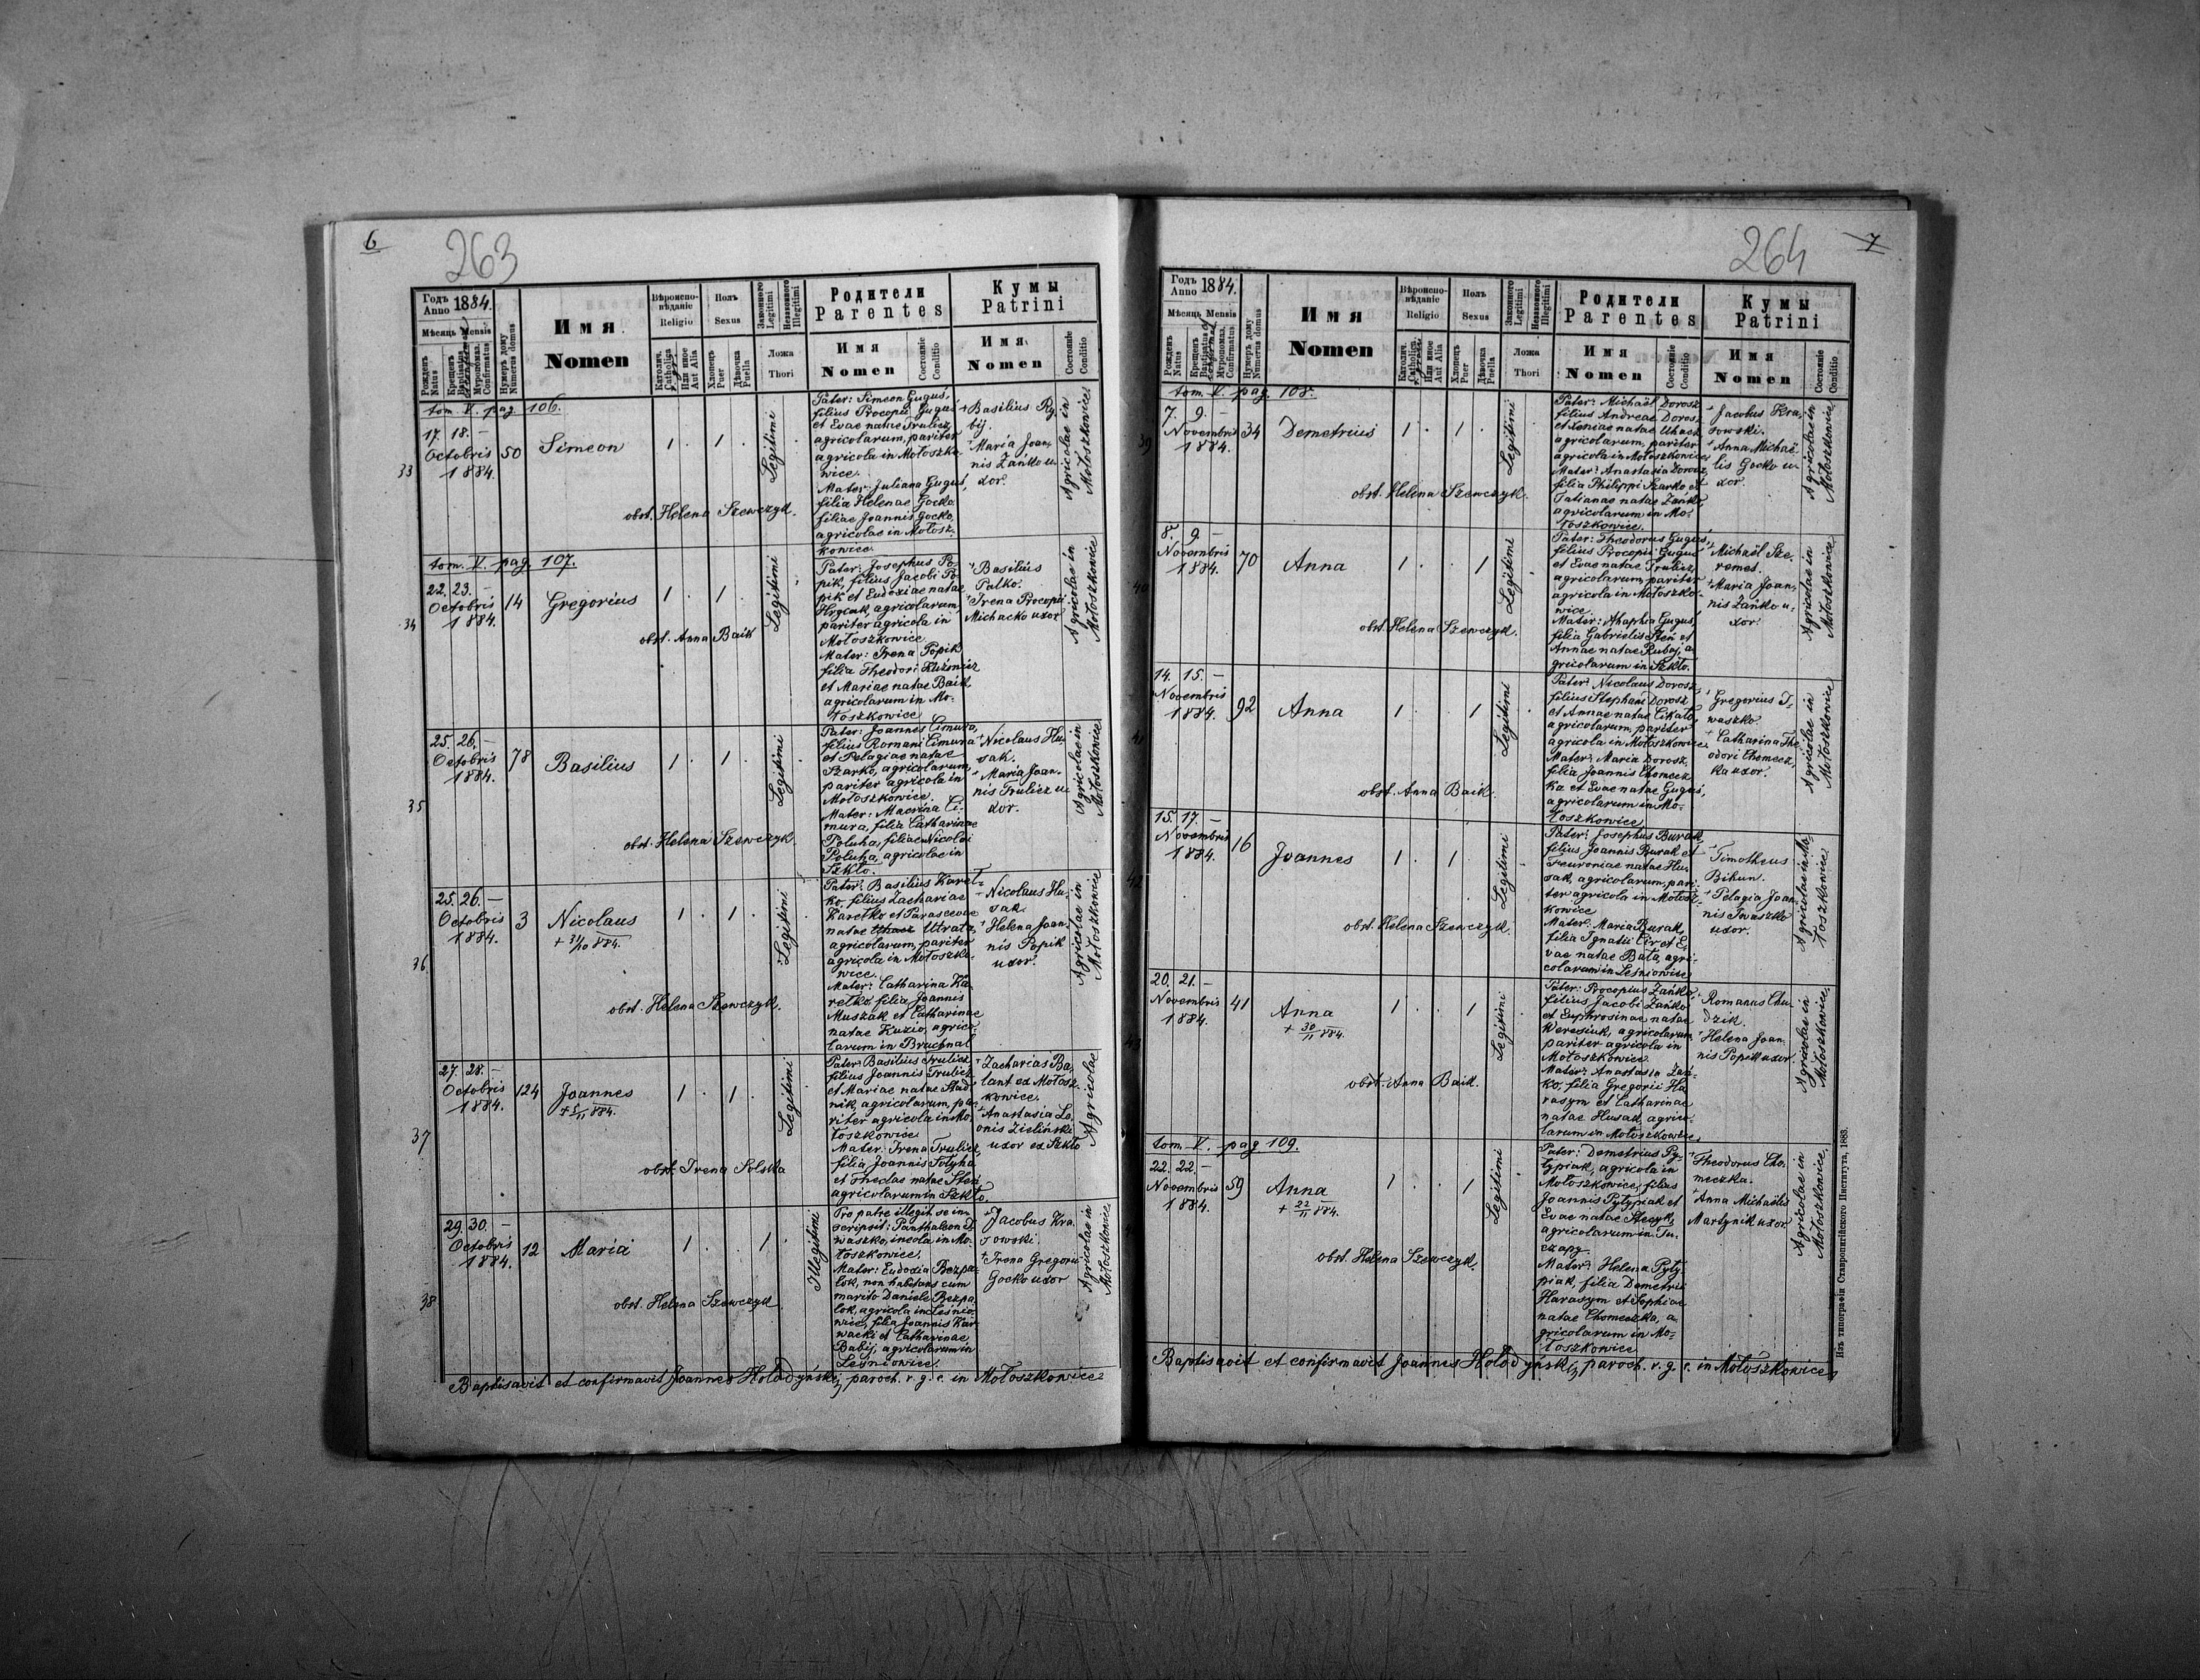 6
263
Годъ 1884.
Anno
Мѣсяць Mensis
Рожденъ Natus
Крещенъ Baptisatus
Мѵропомаз. Confirmatus
Нумеръ дому Numerus domus
Имя
Nomen
Вѣроиспо-
вѣданіе
Religio
Католич. Catholica
Или иное Aut Alia
Полъ
Sexus
Хлопець Puer
Дѣвочка Puella
Законного Legitimi
Незаконного Illegitimi
Ложа
Thori
Родители
Parentes
Имя
Nomen
Состояніе
Conditio
Кумы
Patrini
Имя
Nomen
Состояніе
Conditio
tom. V. pag. 106.
33
17. 18. —
Octobris
1884.
50
Simeon
1 . 1 .
Legitimi
obst. Helena Szewczyk.
Pater: Simeon Guguś,
filius Procopii Guguś
et Evae natae Trulicz,
agricolarum, pariter
agricola in Mołoszko-
wice.
Mater: Juliana Guguś,
filia Helenae Gocko
filiae Joannis Gocko,
agricolae in Mołosz-
kowice.
Basilius Ry-
bij.
Maria Joan-
nis Zańko u-
xor.
Agricolae in
Mołoszkowice
tom. V. pag. 107.
34
22. 23. —
Octobris
1884.
14
Gregorius
1 . 1 .
Legitimi
obst. Anna Baik
Pater: Josephus Po-
pik, filius Jacobi Po-
pik et Eudoxiae natae
Hrycak, agricolarum,
pariter agricola in
Mołoszkowice.
Mater: Irena Popik
filia Theodori Kuzmicz
et Mariae natae Baik,
agricolarum in Mo-
łoszkowice
Basilius
Palko.
Irena Procopii
Michacko uxor
Agricolae in
Mołoszkowice
35
25. 26. —
Octobris
1884.
78
Basilius
1 . 1 .
Legitimi
obst. Helena Szewczyk.
Pater: Joannes Cimura,
filius Romani Cimura
et Pelagiae natae
Szarko, agricolarum,
pariter agricola in
Mołoszkowice.
Mater: Macrina Ci-
mura, filia Catharinae
Poluha, filiae Nicolai
Poluha, agricolae in
Szkło.
Nicolaus Hu-
sak.
Maria Joan-
nis Trulicz u-
xor.
Agricolae in
Mołoszkowice
36
25. 26. —
Octobris
1884.
3
Nicolaus
+ 31/10 884.
1 . 1 .
Legitimi
obst. Helena Szewczyk.
Pater: Basilius Karet-
ko, filius Zachariae
Karetko et Parascevae
natae Utrata,
agricolarum, pariter
agricola in Mołoszko-
wice.
Mater: Catharina Ka-
retko, filia Joannis
Muszak et Catharinae
natae Kuzio, agrico-
larum in Bruchnal
Nicolaus Hu-
sak.
Helena Joan-
nis Popik
uxor.
Agricolae in
Mołoszkowice
37
27. 28. —
Octobris
1884.
124
Joannes
+ 5/11 884.
1 . 1 .
Legitimi
obst. Irena Solska
Pater: Basilius Trulicz
filius Joannis Trulicz
et Mariae natae Stad-
nik, agricolarum, pa-
riter agricola in Mo-
łoszkowice.
Mater: Irena Trulicz,
filia Joannis Sotyha
et Theclae natae Steń
agricolarum in Szkło.
Zacharias Ba-
lant ex Mołosz-
kowice.
Anastasia Le-
onis Zieliński
uxor ex Szkło
Agricolae
38
29. 30. —
Octobris
1884.
12
Maria
1 . . 1 .
Illegitimi
obst. Helena Szewczyk
Pro patre illegit. se in-
scripsit: Panthaleon I-
waszko, incola in Mo-
łoszkowice.
Mater: Eudoxia Bezpa-
lok, non habitans cum
marito Daniele Bezpa-
lok, agricola in Leśnio-
wice, filia Joannis Kar-
wacki et Catharinae
Babij, agricolarum in
Leśniowice.
Jacobus Kra-
sowski.
Irena Gregorii
Gocko uxor
Agricolae in
Mołoszkowice
Baptisavit et confirmavit Joannes Hołodyński, paroch. r. g. c. in Mołoszkowice
7
264
Годъ 1884.
Anno
Мѣсяць Mensis
Рожденъ Natus
Крещенъ Baptisatus
Мѵропомаз. Confirmatus
Нумеръ дому Numerus domus
Имя
Nomen
Вѣроиспо-
вѣданіе
Religio
Католич. Catholica
Или иное Aut Alia
Полъ
Sexus
Хлопець Puer
Дѣвочка Puella
Законного Legitimi
Незаконного Illegitimi
Ложа
Thori
Родители
Parentes
Имя
Nomen
Состояніе
Conditio
Кумы
Patrini
Имя
Nomen
Состояніе
Conditio
tom. V. pag. 108.
39
7. 9. —
Novembris
1884.
34
Demetrius
1 . 1 .
Legitimi
obst. Helena Szewczyk.
Pater: Michaël Dorosz
filius Andreae Dorosz
et Xeniae natae Uhacz
agricolarum, pariter
agricola in Mołoszkowice,
Mater: Anastasia Dorosz,
filia Philippi Szarko et
Tatianae natae Zańko,
agricolarum in Mo-
łoszkowice.
Jacobus Kra-
sowski.
Anna Michaë-
lis Gocko u-
xor.
Agricolae in
Mołoszkowice
40
8. 9. —
Novembris
1884.
70
Anna
1 . . 1
Legitimi
obst. Helena Szewczyk.
Pater: Theodorus Guguś,
filius Procopii Guguś
et Evae natae Trulicz,
agricolarum pariter
agricola in Mołoszko-
wice.
Mater: Ahaphia Guguś,
filia Gabrielis Steń et
Annae natae Rubaj, a-
gricolarum in Szkło.
Michaël Sze-
remet.
Maria Joan-
nis Zańko u-
xor.
Agricolae in
Mołoszkowice
41
14. 15. —
Novembris
1884.
92
Anna
1 . . 1
Legitimi
obst. Anna Baik.
Pater: Nicolaus Dorosz,
filius Stephani Dorosz
et Annae natae Cikało,
agricolarum, pariter
agricola in Mołoszkowice,
Mater: Maria Dorosz,
filia Joannis Chomecz-
ka et Evae natae Guguś,
agricolarum in Mo-
łoszkowice.
Gregorius I-
waszko.
Catharina The-
odori Chomecz-
ka uxor.
Agricolae in
Mołoszkowice
42
15. 17. —
Novembris
1884.
16
Joannes
1 . 1 .
Legitimi
obst. Helena Szewczyk.
Pater: Josephus Burak,
filius Joannis Burak et
Fevroniae natae Hu-
sak, agricolarum, pari-
ter agricola in Mołosz-
kowice
Mater: Maria Burak,
filia Ignatii Cir et E-
vae natae Bata, agri-
colarum in Leśniowice
Timotheus
Bihun.
Pelagia Joan-
nis Iwaszko
uxor.
Agricolae in Mo-
łoszkowice
43
20. 21. —
Novembris
1884.
41
Anna
+ 30/11 884.
1 . . 1
Legitimi
obst. Anna Baik.
Pater: Procopius Zańko,
filius Jacobi Zańko
et Euphrosinae natae
Weresiuk, agricolarum,
pariter agricola in
Mołoszkowice
Mater: Anastasia Zań-
ko, filia Gregorii Ha-
rasym et Catharinae
natae Husak, agrico-
larum in Mołoszkowice,
Romanus Chu-
dzik.
Helena Joan-
nis Popik uxor
Agricolae in
Mołoszkowice
tom. V. pag. 109.
22. 22. —
Novembris
1884.
59
Anna
+ 22/11 884.
1 . . 1
Legitimi
obst. Helena Szewczyk.
Pater: Demetrius Py-
typiak, agricola in
Mołoszkowice, filius
Joannis Pytypiak et
Evae natae Stecyk,
agricolarum in Tu-
czapy.
Mater: Helena Pyty-
piak, filia Demetrii
Harasym et Sophiae
natae Chomeczka, a-
gricolarum in Mo-
łoszkowice
Theodorus Cho-
meczka.
Anna Michaëlis
Martynik uxor
Agricolae in
Mołoszkowice,
Baptisavit et confirmavit Joannes Hołodyński, paroch. r. g. c. in Mołoszkowice
Изъ типографіи Ставропигійского Института, 1883.